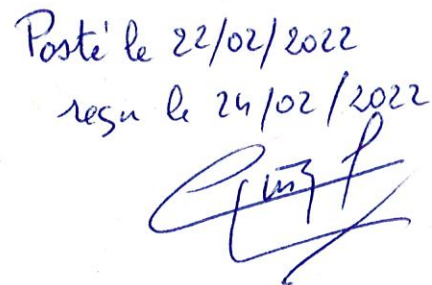 Posté le 22/02/2022
reçu le 24/02/2022